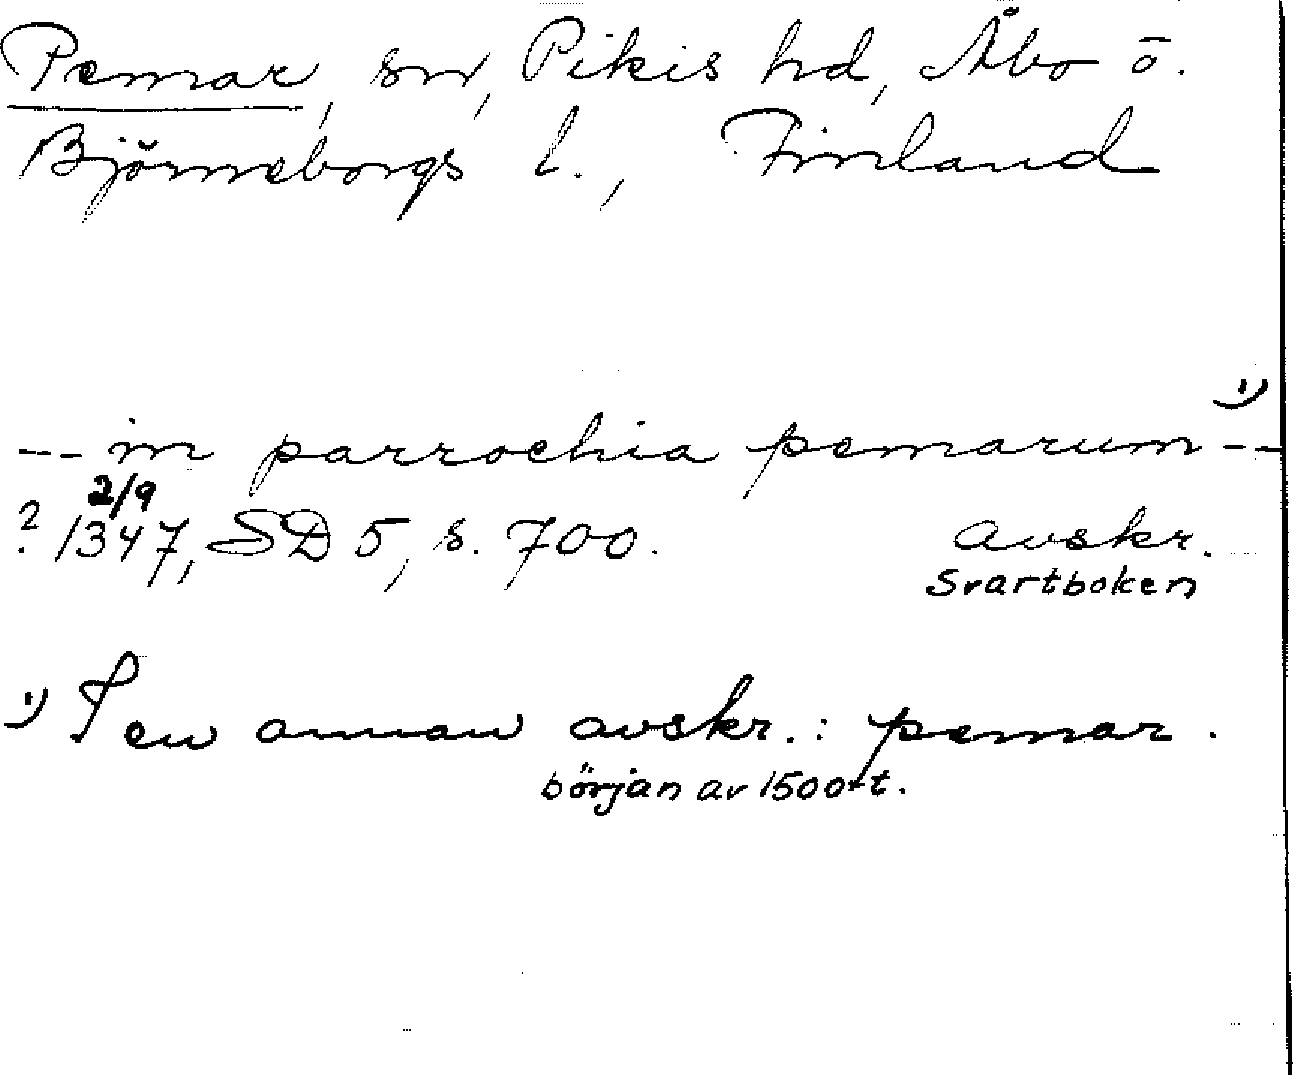 Pemar, sn, Pikis hd, Åbo o.
Björneborgs l., Finland
-- in parrochia pemarum -- 1)
2/9
? 1347, SD 5, s. 700. avskr.
Svartboken
1) I en annan avskr.: pemar.
början av 1500-t.